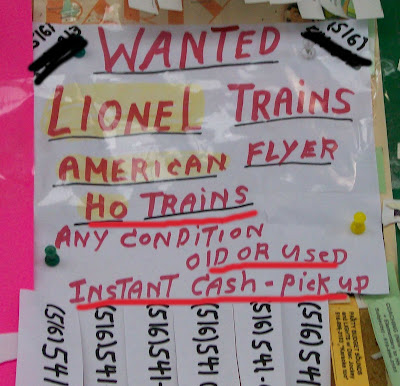 (516)
(516)
WANTED
LIONEL TRAINS
AMERICAN FLYER
HO TRAINS
ANY CONDITION
OlD OR USeD
INSTANT CASH - PicK UP
(516) 541
(516) 541
(516) 541
(516) 541
(516) 541
(516) 541